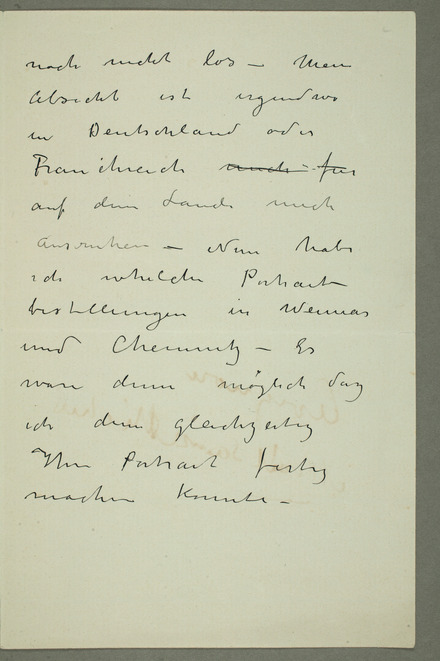 noch nicht los – Mein
Absicht ist irgendwo
in Deutschland oder
Frankreich mich für
auf dem Lande mich
ausruhen – Nun habe
ich Portrait
bestellungen in Weimar
und Chemnitz – Es
ware denn möglich das
ich denn gleichzeitig
Ihr Portrait fertig
machen konnte –